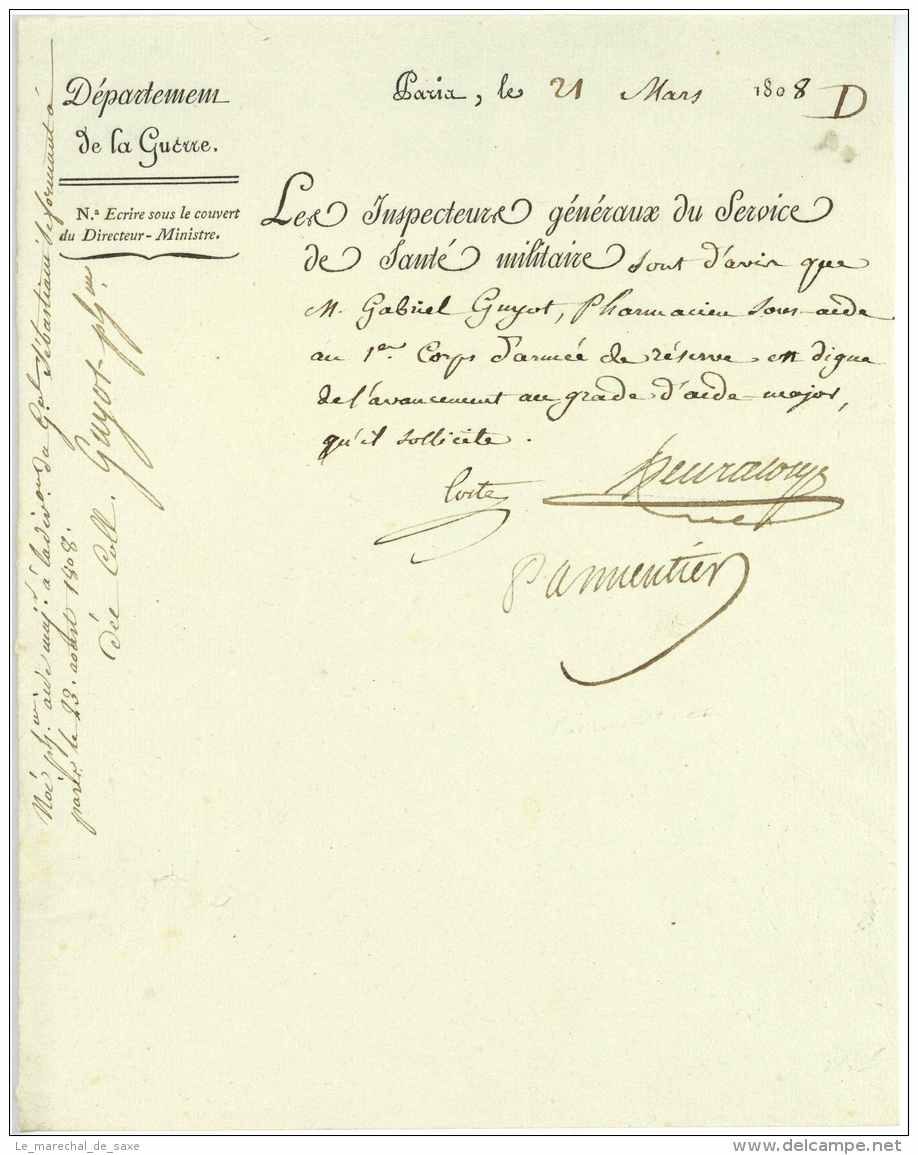 Département
de la Guerre.
N.ª Ecrire sous le couvert
du Directeur-Ministre.
Paris, le 21 Mars 1808
D
Les Inspecteurs généraux du Service
de Santé militaire sont d'avis que
M. Gabriel Guyot, Pharmacien sous-aide
au 1er Corps d'armée de réserve est digne
de l'avancement au grade d'aide-major,
qu'il sollicite.
Coste
Heurteloup
Parmentier
Guyot phien
Noé phien aide maj.r à la div.on du Gal Sébastiani se formant à
paris le 23. aoust 1808.
dée Coll.
Le_marechal_de_saxe
www.delcampe.net